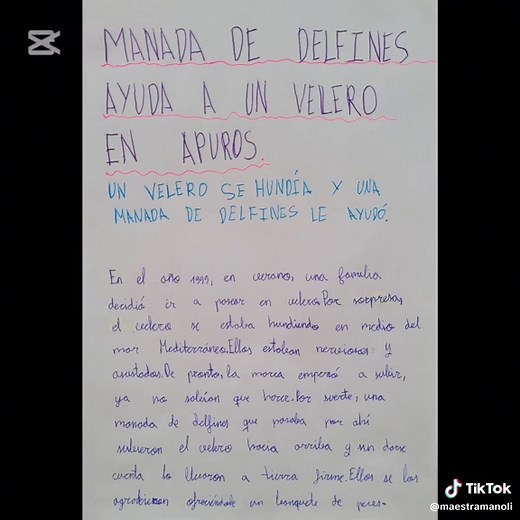 MANADA DE DELFINES
AYUDA A UN VELERO
EN APUROS.
UN VELERO SE HUNDÍA Y UNA
MANADA DE DELFINES LE AYUDÓ.
En el año 1999, en verano, una familia
decidió ir a pasear en velero. Por sorpresa,
el velero se estaba hundiendo en medio del
mar Mediterráneo. Ellos estaban nerviosos y
asustados. De pronto, la marea empezó a subir,
ya no sabían que hacer. Por suerte, una
manada de delfines que pasaba por ahí
subieron el velero hacia arriba y sin darse
cuenta lo llevaron a tierra firme. Ellos se los
agradecieron ofreciéndole un banquete de peces-
TikTok
@maestramanoli